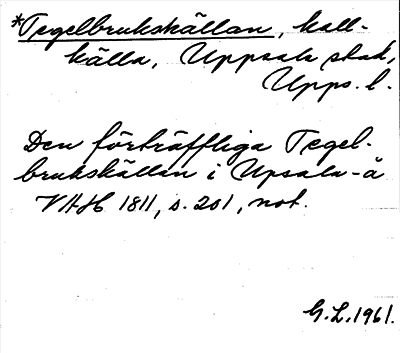 *Tegelbrukskällan, kall-
källa, Uppsala stad,
Upps. l.
Den förträffliga Tegel-
brukskällan i Upsala-å
VAH 1811, s. 201, not.
G.L. 1961.